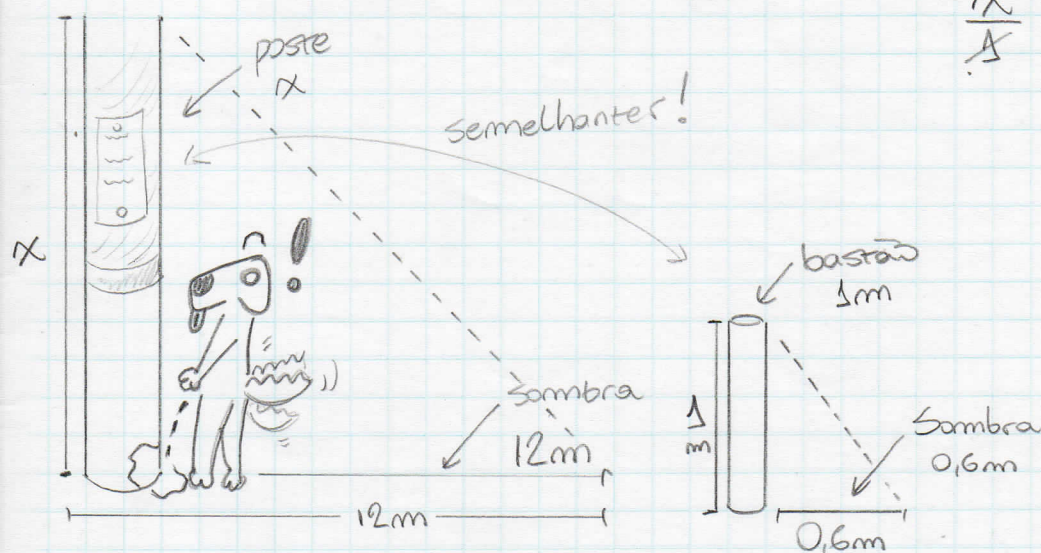 x
1
poste
x
semelhantes!
x
bastão
1m
sombra
12m
1
m
Sombra
0,6m
12m
0,6m